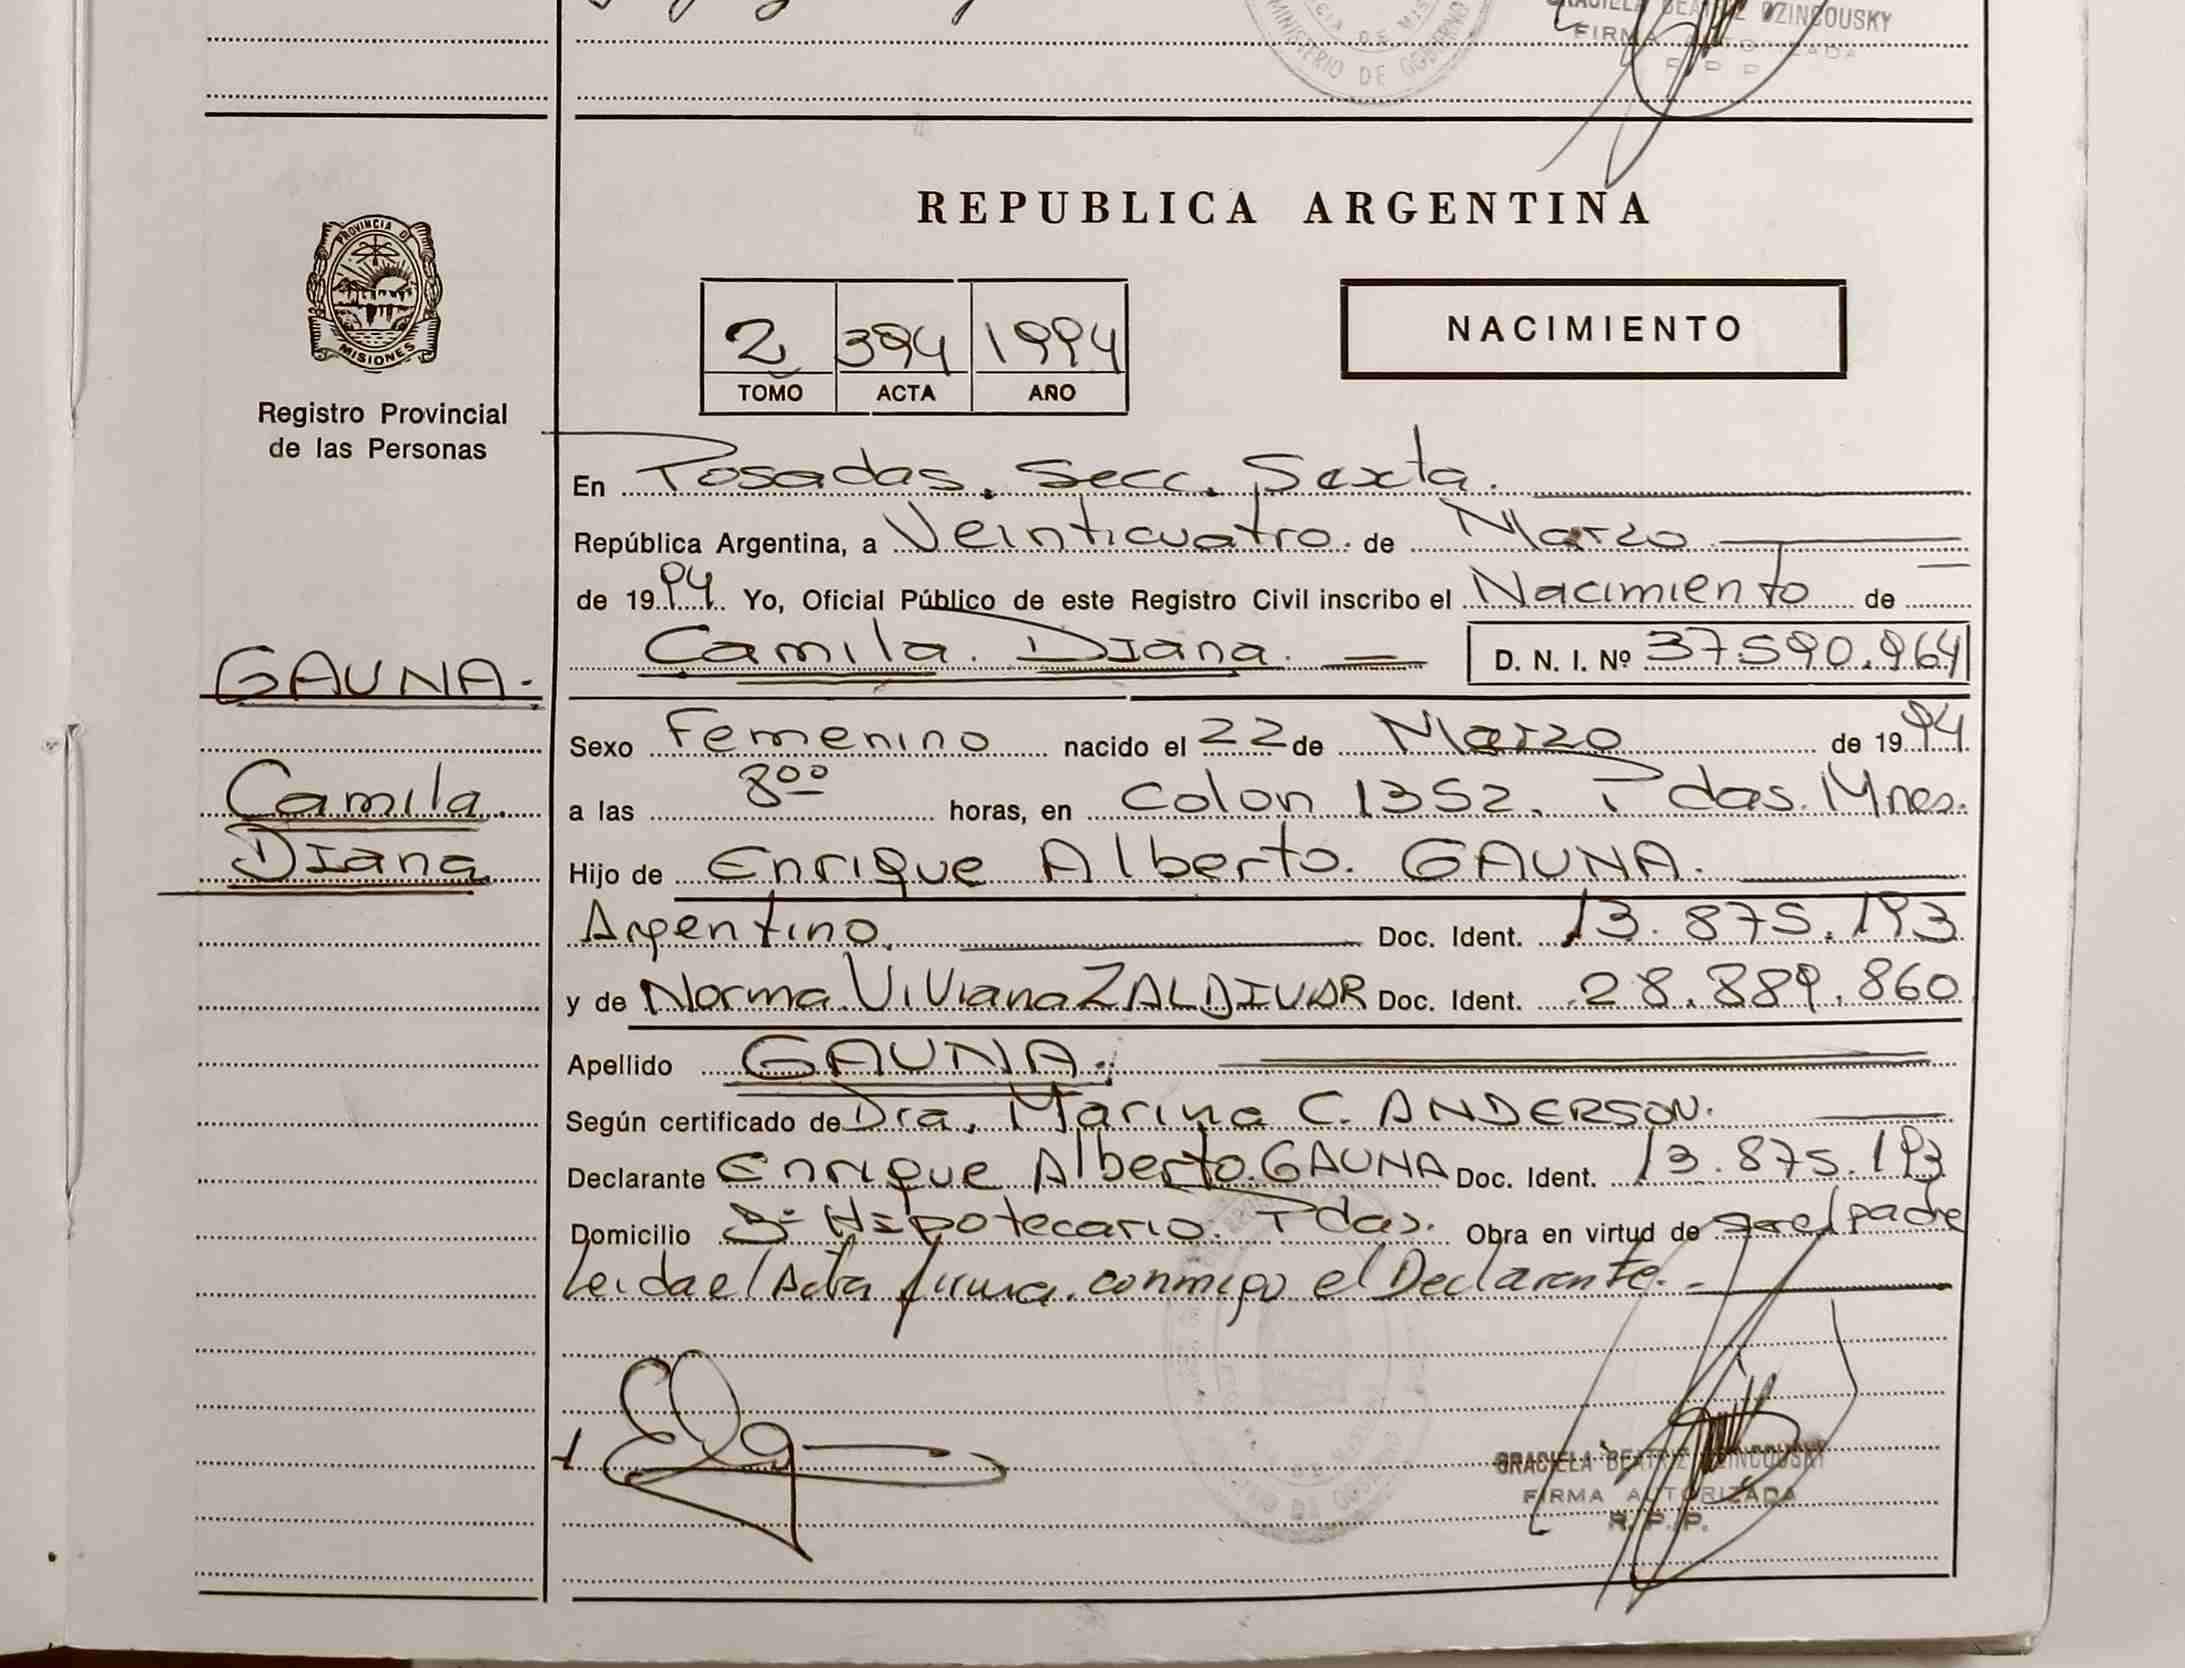 GRACIELA BEATRIZ DZINCOUSKY
FIRMA AUTORIZADA
R. P. P.
MINISTERIO DE GOBIERNO
REPUBLICA ARGENTINA
PROVINCIA DE
MISIONES
Registro Provincial
de las Personas
2 394 1994
TOMO ACTA AÑO
NACIMIENTO
En Posadas. Secc. Sexta.
República Argentina, a Veinticuatro de Marzo
de 1994. Yo, Oficial Público de este Registro Civil inscribo el Nacimiento de
Camila Diana. D. N. I. Nº 37.590.964
GAUNA.
Camila
Diana
Sexo Femenino nacido el 22 de Marzo de 1994
a las 8⁰⁰ horas, en Colon 1352. Pdas. Mnes.
Hijo de Enrique Alberto. GAUNA.
Argentino. Doc. Ident. 13.875.193
y de Norma Viviana ZALDIVAR Doc. Ident. 28.889.860
Apellido GAUNA.
Según certificado de Dra. Marina C. ANDERSON.
Declarante Enrique Alberto GAUNA Doc. Ident. 13.875.193
Domicilio Bº Hipotecario. Pdas. Obra en virtud de ser el padre
Leida el Acta firma conmigo el Declarante.
GRACIELA BEATRIZ DZINCOUSKY
FIRMA AUTORIZADA
R. P. P.